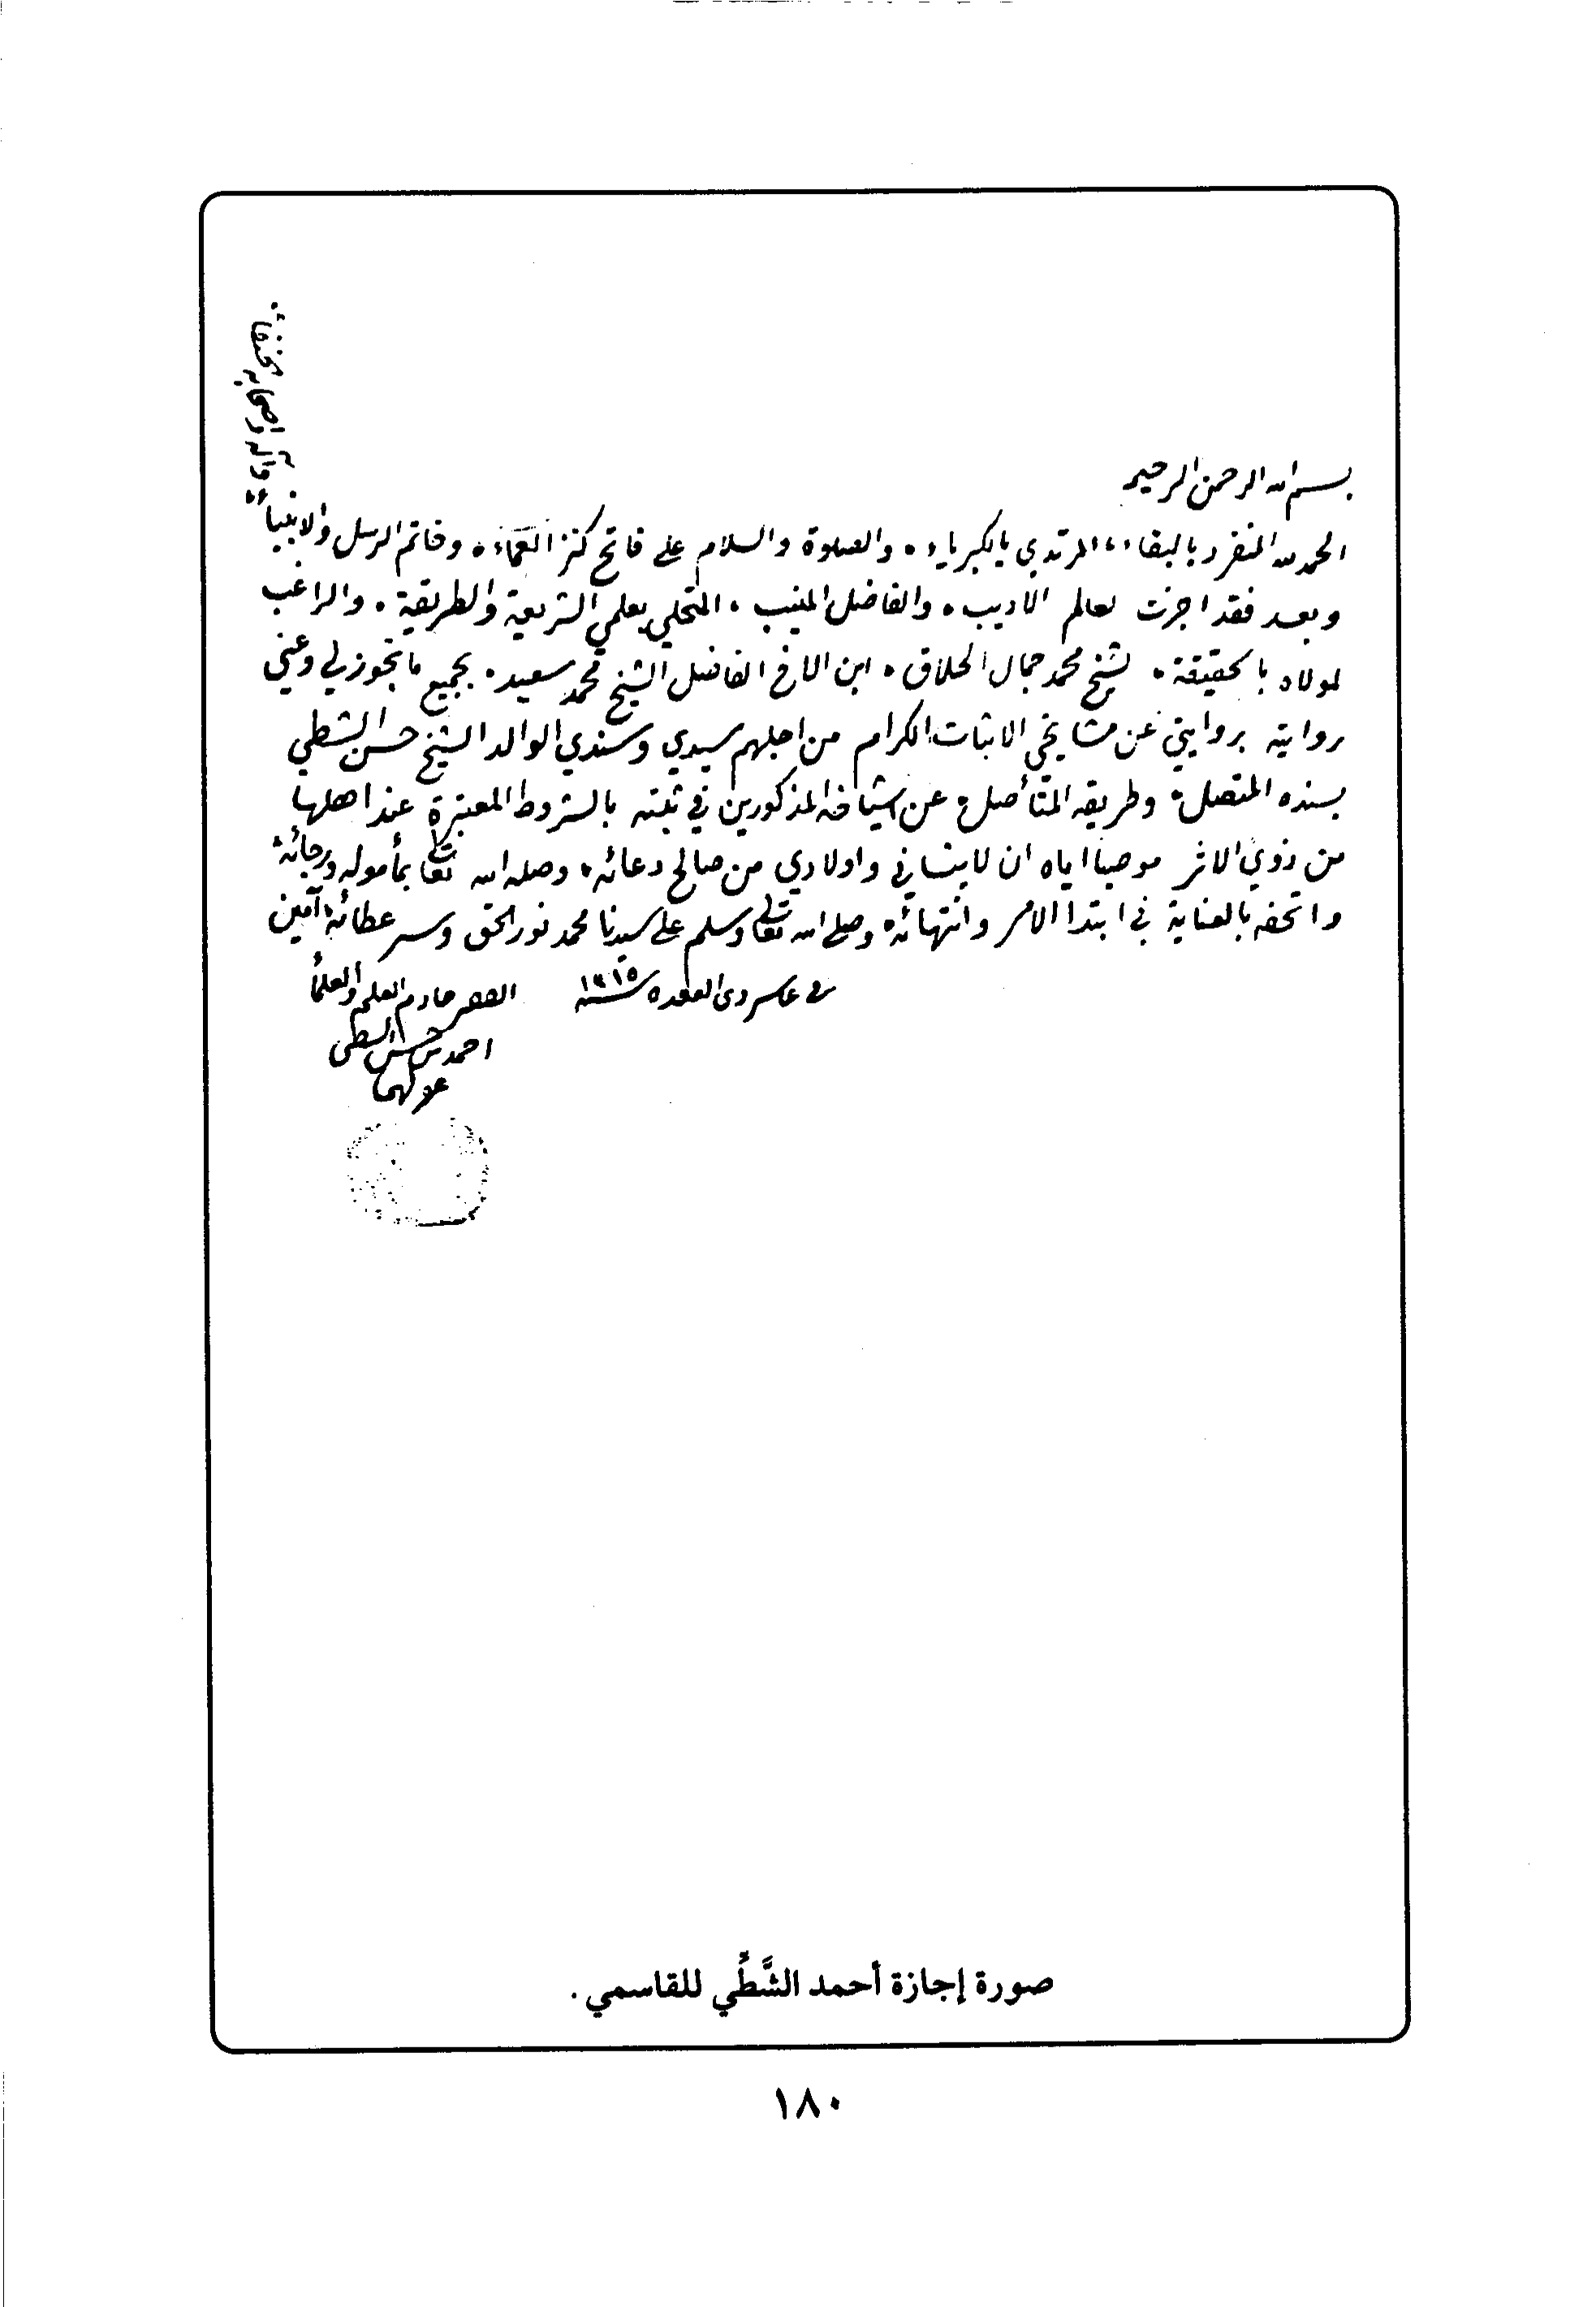 بسم الله الرحمن الرحيم
الحمد لله المنفرد بالبقاء، المرتدي بالكبرياء، والصلوة والسلام على فاتح كنز العماء، وخاتم الرسل والانبياء
وآله واصحابه الحنفاء
وبعد فقد اجزت لعالم الاديب، والفاضل المنيب، المتحلي بعلمي الشريعة والطريقة، والراغب
لمولاه بالحقيقة، لشيخ محمد جمال الحلاق، ابن الاخ الفاضل الشيخ محمد سعيد، بجميع ما تجوز لي وعني
روايته بروايتي عن مشايخي الاثبات الكرام من اجلهم سيدي وسندي الوالد الشيخ حسن الشطي
بسنده المتصل، وطريقه المتأصل، عن اشياخه المذكورين في ثبته بالشروط المعتبرة عند اهلها
من ذوي الاثر موصيا اياه ان لا ينساني واولادي من صالح دعائه، وصله الله تعالى بمأموله ورجائه،
واتحفه بالعناية في ابتدا الامر وانتهائه، وصلى الله تعالى وسلم على سيدنا محمد نور الحق وسر عطائه، آمين
في عاشر ذي القعدة سنة ١٣١٥
الفقير خادم العلم والعلما
احمد بن حسن الشطي
عفي عنهما
صورة إجازة أحمد الشَّطِّي للقاسمي .
١٨٠